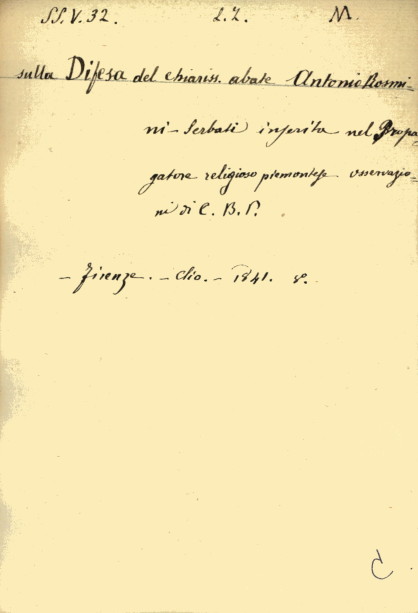 SS.V.32. 2.2. M.
sulla Difesa del chiariss. abate Antonio Rosmi-
ni-Serbati inserita nel Propa-
gatore religioso piemontese osservazio-
ni di C. B. P.
- Firenze. - Clio. - 1841. 8.
C